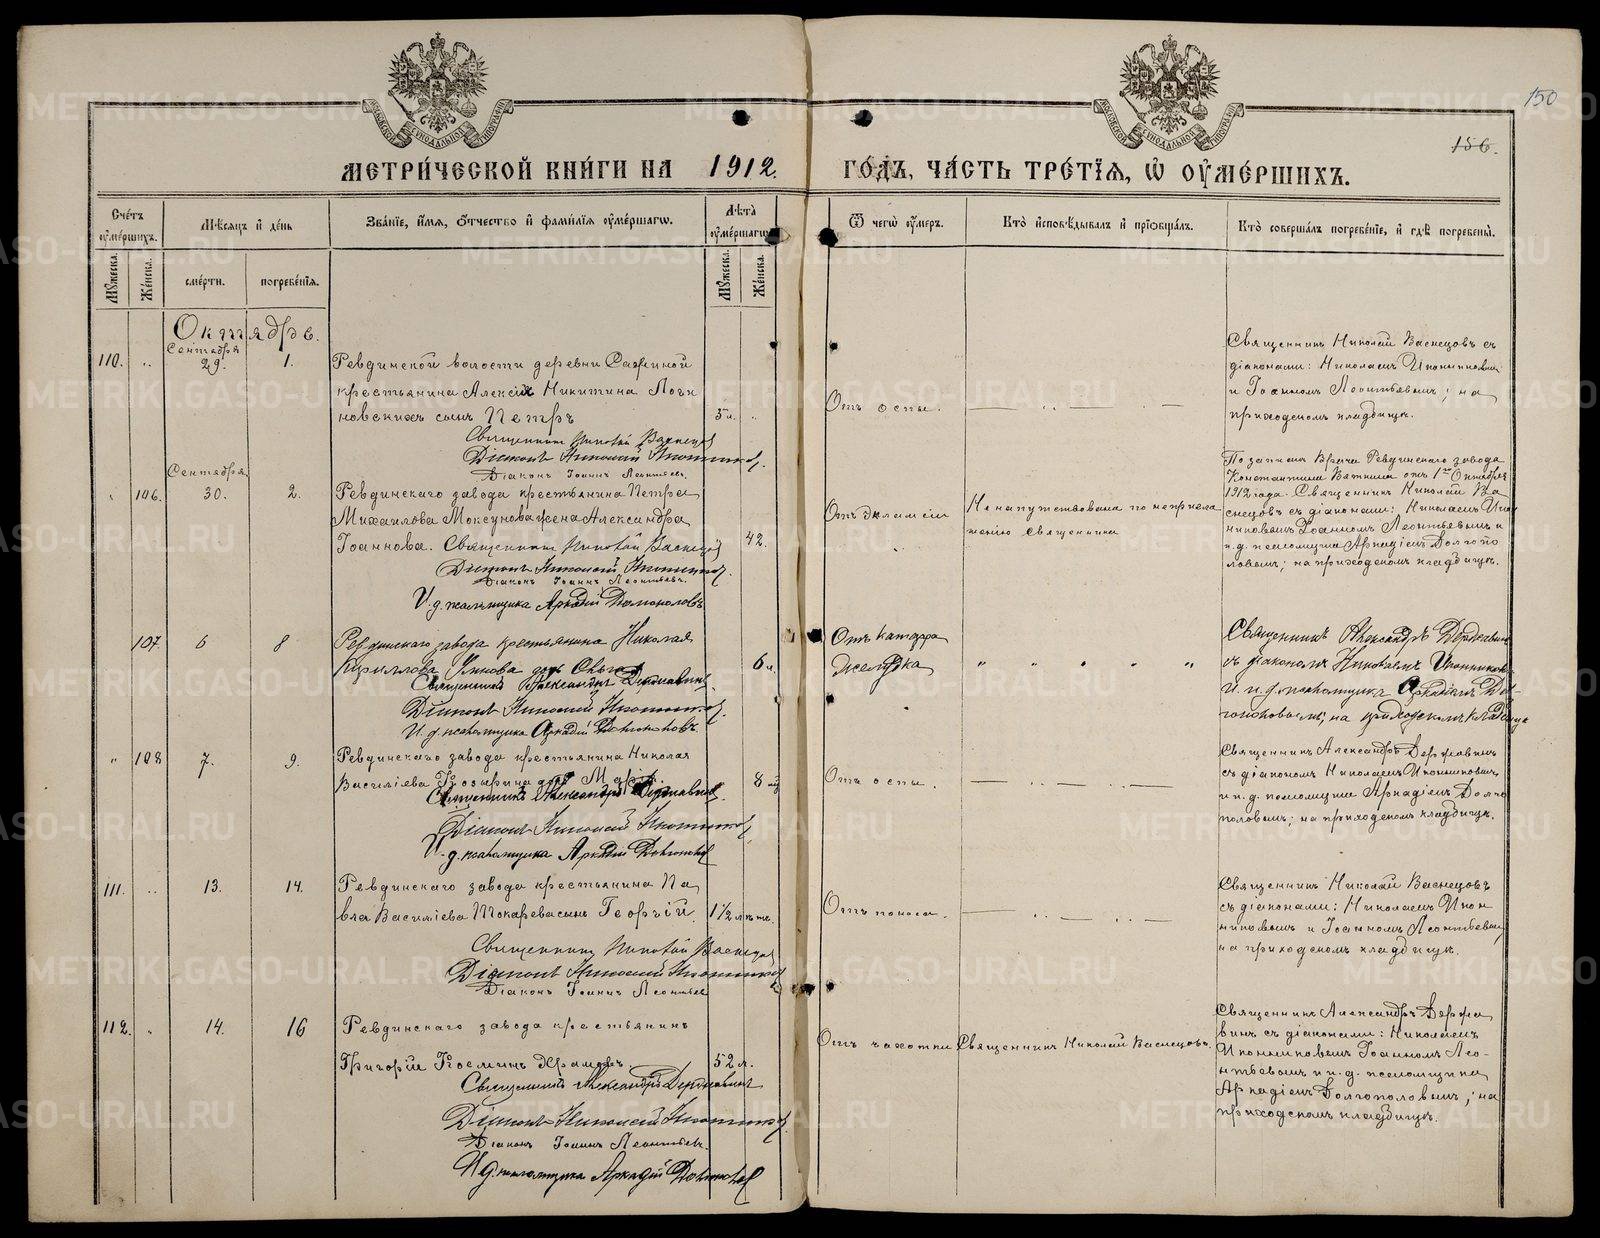 150
156.
МЕТРИ́ЧЕСКОЙ КНИ́ГИ НА 1912. ГО́ДЪ, ЧА́СТЬ ТРЕ́ТЇЯ, Ѿ ОУМЕ́РШИХЪ.
Сче́тъ оуме́ршихъ.
Мѣ́сяцъ и҆ де́нь
Зва́нїе, и҆́мя, ѻ҆́тчество и҆ фами́лїя оуме́ршагѡ.
Лѣ́та оуме́ршагѡ
Ѿ чегѡ̀ оу́меръ.
Кто̀ и҆сповѣ́дывалъ и҆ прїѡбща́лъ.
Кто̀ соверша́лъ погребе́нїе, и҆ гдѣ̀ погребены̀.
Мꙋ́жеска.
Же́нска.
сме́рти.
погребе́нїя.
Мꙋ́жеска.
Же́нска.
Октябрь.
Сентября
110. „ 29. 1.
Ревдинской волости деревни Сафиной
крестьянина Алексія Никитина Логи
новскихъ сынъ Петръ
3 л. „
Священникъ Николай Васнецовъ
Діаконъ Николай Иконниковъ.
Діаконъ Іоаннъ Леонтьевъ.
Отъ оспы.
Священникъ Николай Васнецовъ съ
діаконами: Николаемъ Иконниковымъ
и Іоанномъ Леонтьевымъ; на
приходскомъ кладбищѣ.
Сентября
„ 106. 30. 2.
Ревдинскаго завода крестьянина Петра
Михаилова Моксунова жена Александра
Іоаннова. Священникъ Николай Васнецовъ
42.
Діаконъ Николай Иконниковъ.
Діаконъ Іоаннъ Леонтьевъ.
И. д. псаломщика Аркадій Долгополовъ
Отъ эклямсіи
Не напутствована по непригла
шенію священника
По запискѣ Врача Ревдинскаго завода
Константина Вяткина отъ 1го Октября
1912 года. Священникъ Николай Ва
снецовъ съ діаконами: Николаемъ Ико
никовымъ Іоанномъ Леонтьевымъ и
и. д. псаломщика Аркадіемъ Долгопо
ловымъ; на приходскомъ кладбищѣ.
107. 6 8
Ревдинскаго завода крестьянина Николая
Кириллова дочь Ольга
6 л.
Священникъ Александръ Державинъ
Діаконъ Николай Иконниковъ.
И. д. псаломщика Аркадій Долгополовъ.
Отъ катарра
желудка
„ „ „ „ „
Священникъ Александръ Державинъ
съ діакономъ Николаемъ Иконников-
и и. д. псаломщика Аркадіемъ Дол-
гополовымъ, на приходскомъ кладбищѣ
„ 108 7. 9.
Ревдинскаго завода крестьянина Николая
Василіева Козырина дочь Марія
8
Священникъ Александръ Державинъ
Діаконъ Николай Иконниковъ,
И. д. псаломщика Аркадій Долгополовъ
Отъ оспы.
Священникъ Александръ Державинъ
съ діакономъ Николаемъ Иконниковымъ
и и. д. псаломщика Аркадіемъ Долго
половымъ; на приходскомъ кладбищѣ.
111. „ 13. 14.
Ревдинскаго завода крестьянина Па
вла Василіева Токарева сынъ Георгій
1½ лѣтъ.
Священникъ Николай Васнецовъ
Діаконъ Николай Иконниковъ
Діаконъ Іоаннъ Леонтьевъ
Отъ поноса.
Священникъ Николай Васнецовъ
съ діаконами: Николаемъ Икон
никовымъ и Іоанномъ Леонтьевымъ
на приходскомъ кладбищѣ.
112. „ 14. 16
Ревдинскаго завода крестьянинъ
Григорій Косминъ Храмовъ.
52 л.
Священникъ Александръ Державинъ
Діаконъ Николай Иконниковъ
Діаконъ Іоаннъ Леонтьевъ.
И д. псаломщика Аркадій Долгополовъ
Отъ чахотки
Священникъ Николай Васнецовъ.
Священникъ Александръ Держа
винъ съ діаконами: Николаемъ
Иконниковымъ Іоанномъ Лео-
нтьевымъ и и. д. псаломщика
Аркадіемъ Долгополовымъ; на
приходскомъ кладбищѣ.
METRIKI.GASO-URAL.RU